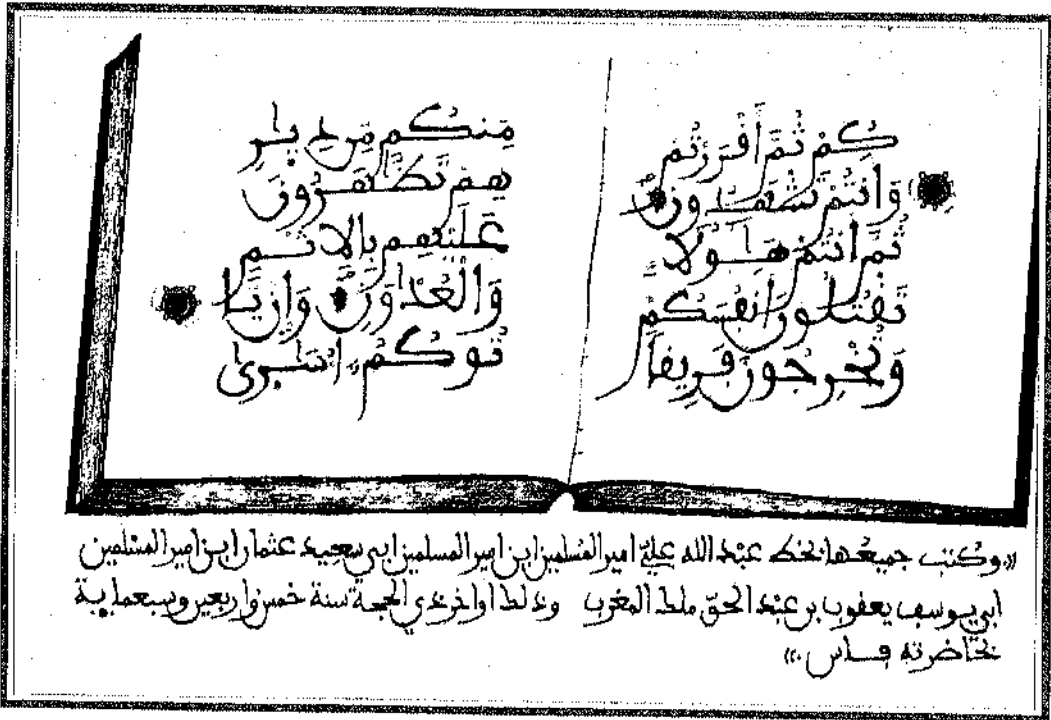 كُمْ ثُمَّ أَقْرَرْتُمْ
وَأَنتُمْ تَشْهَدُونَ
ثُمَّ أَنتُمْ هَٰؤُلَاءِ
تَقْتُلُونَ أَنفُسَكُمْ
وَتُخْرِجُونَ فَرِيقًا
مِنكُم مِّن دِيَٰرِ
هِمْ تَظَّٰهَرُونَ
عَلَيْهِم بِالْإِثْمِ
وَالْعُدْوَٰنِ وَإِن يَا
تُوكُمْ أُسَٰرَىٰ
«وكتب جميعها بخط عبد الله علي أمير المسلمين ابن أمير المسلمين ابي سعيد عثمان ابن امير المسلمين
ابي يوسف يعقوب بن عبد الحق ملك المغرب وذلك اواخر ذي الحجة سنة خمس واربعين وسبعماية
بحاضرته فاس.»